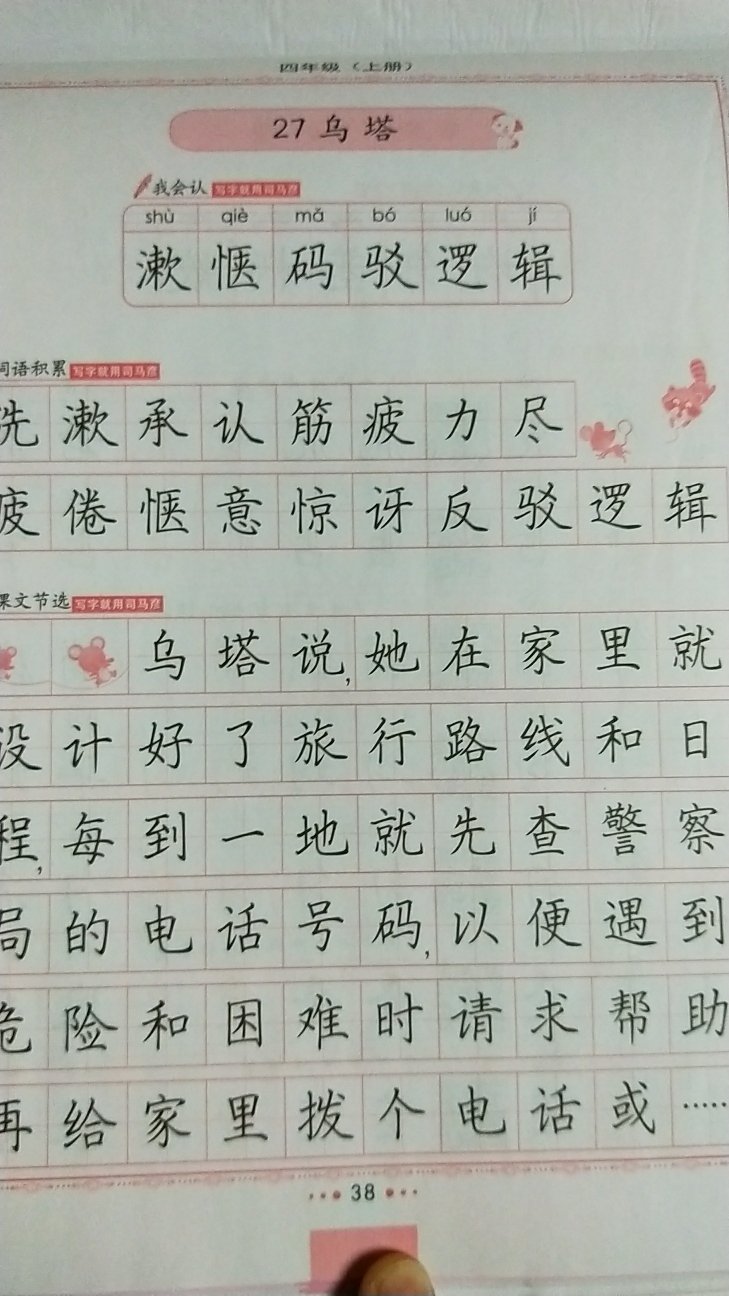 四年级（上册）
27 乌塔
我会认 写字就用司马彦
shù qiè mǎ bó luó jí
漱惬码驳逻辑
词语积累 写字就用司马彦
洗漱承认筋疲力尽
疲倦惬意惊讶反驳逻辑
课文节选 写字就用司马彦
乌塔说，她在家里就
设计好了旅行路线和日
程，每到一地就先查警察
局的电话号码，以便遇到
危险和困难时请求帮助
再给家里拨个电话或……
38